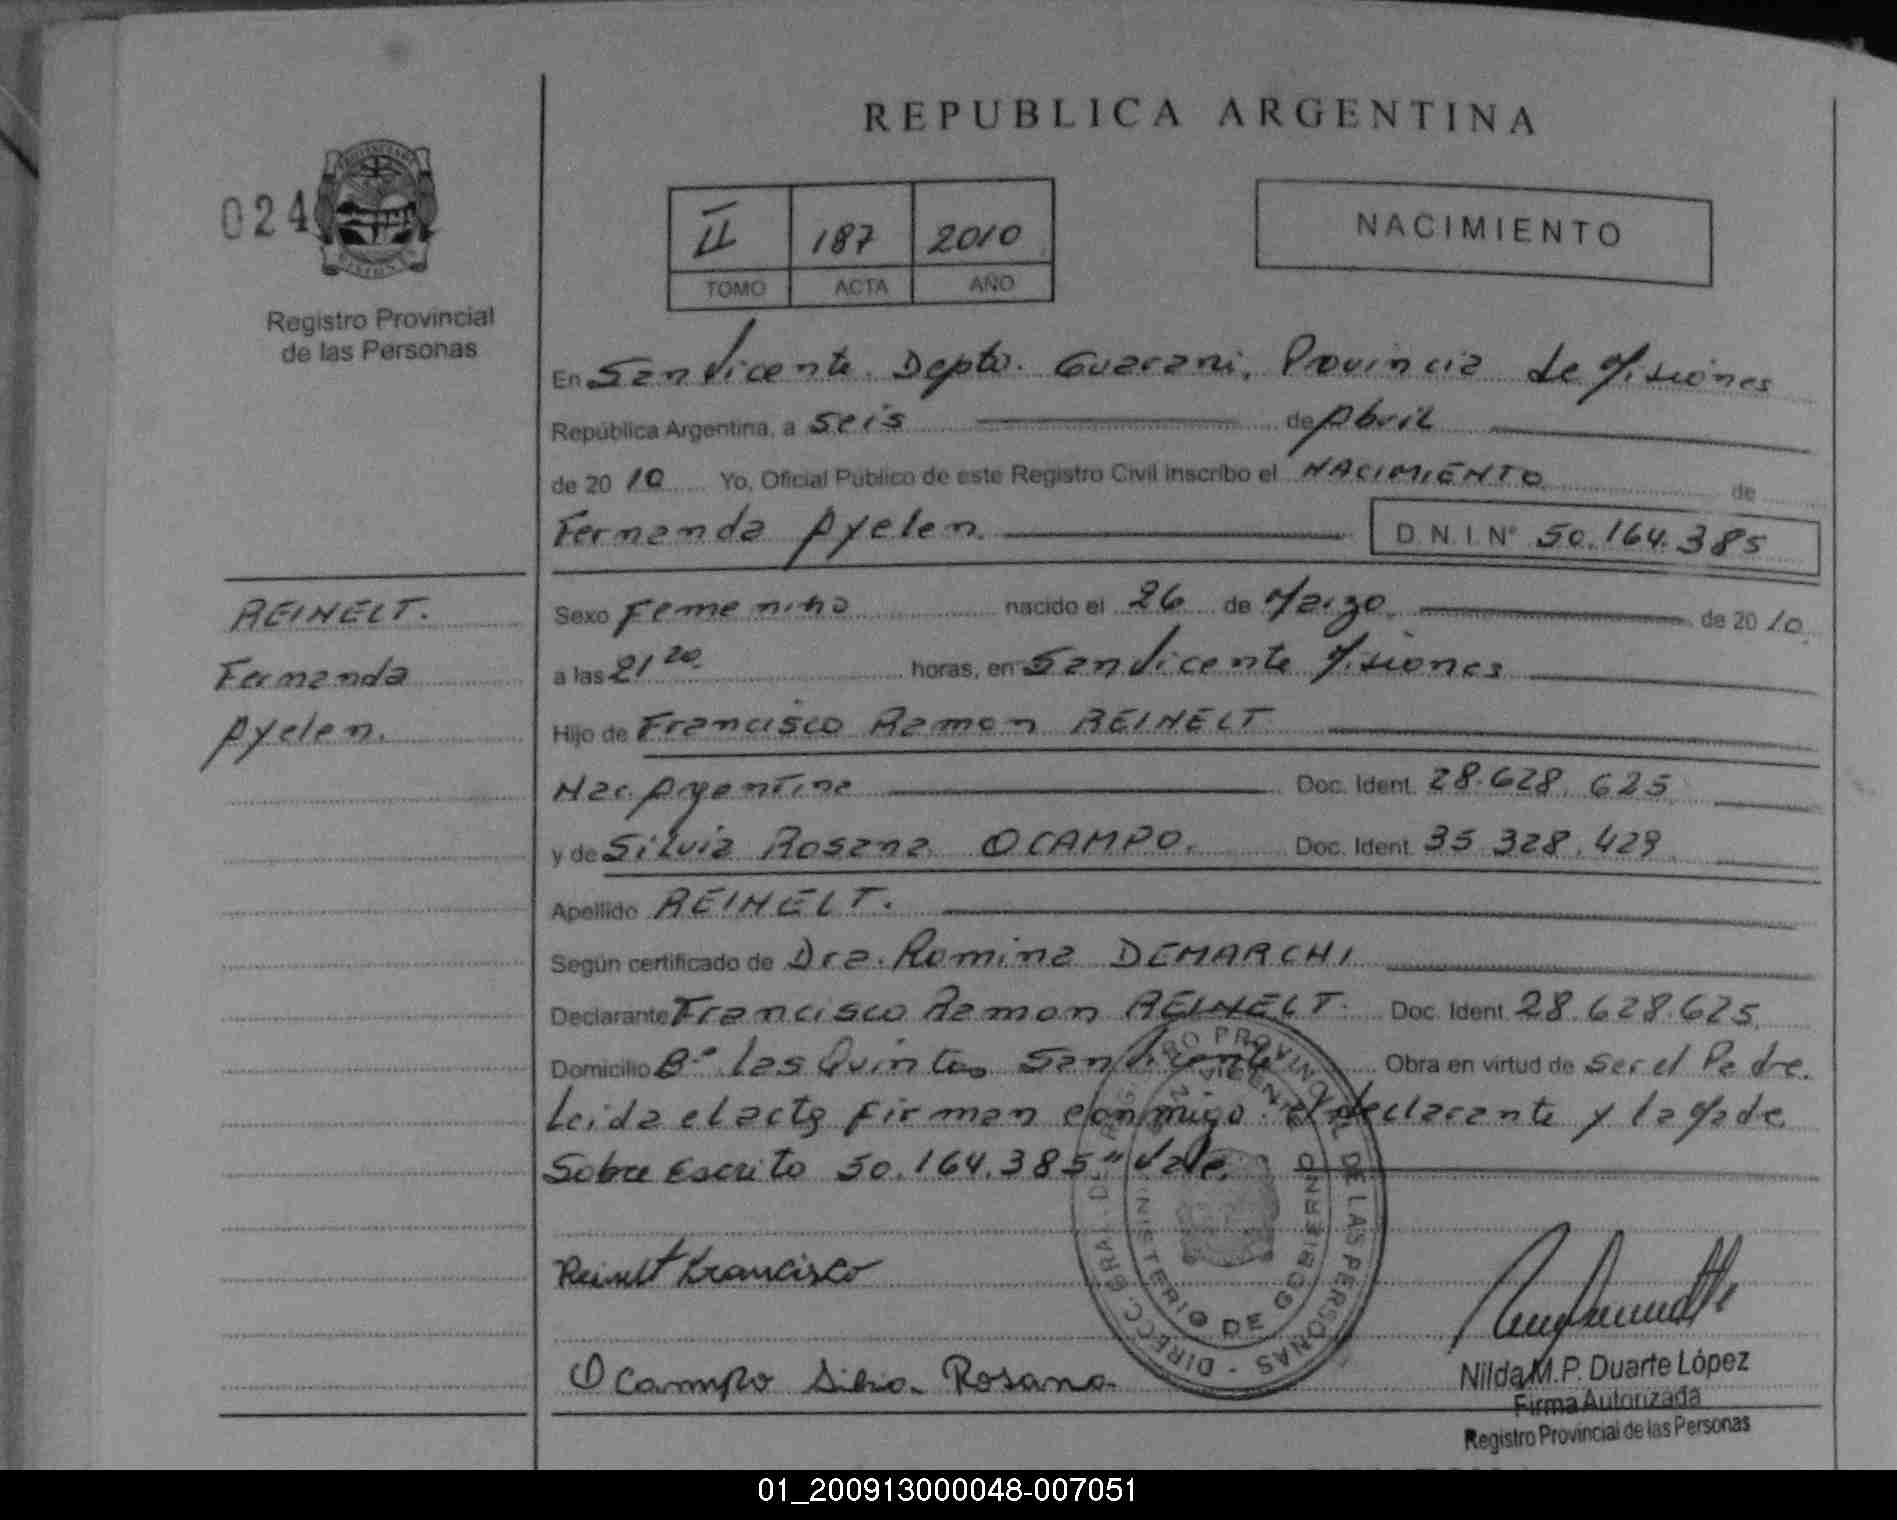 REPUBLICA ARGENTINA
024
II 187 2010
TOMO ACTA AÑO
NACIMIENTO
Registro Provincial
de las Personas
En San Vicente Depto. Guarani, Provincia de Misiones
República Argentina, a seis de Abril
de 2010 Yo, Oficial Público de este Registro Civil inscribo el NACIMIENTO de
Fernanda Ayelen. D.N.I. Nº 50.164.385
REINELT.
Fernanda
Ayelen.
Sexo Femenino nacido el 26 de Marzo de 2010.
a las 21 20 horas, en San Vicente Misiones
Hijo de Francisco Ramon REINELT
Nac. Argentina Doc. Ident. 28.628.625
y de Silvia Rosana OCAMPO. Doc. Ident. 35.328.429
Apellido REINELT.
Según certificado de Dra. Romina DEMARCHI
Declarante Francisco Ramon REINELT. Doc. Ident. 28.628.625
Domicilio Bº Las Quintas San Vicente Obra en virtud de ser el Padre.
Leida el acta firman conmigo el declarante y la Made
Sobre Escrito 50.164.385" Vale.
DIRECC. GRAL. DEL REGISTRO PROVINCIAL DE LAS PERSONAS -
SAN VICENTE
MINISTERIO DE GOBIERNO
Reinelt Francisco
Ocampo Silvia Rosana
Nilda M.P. Duarte López
Firma Autorizada
Registro Provincial de las Personas
01_200913000048-007051